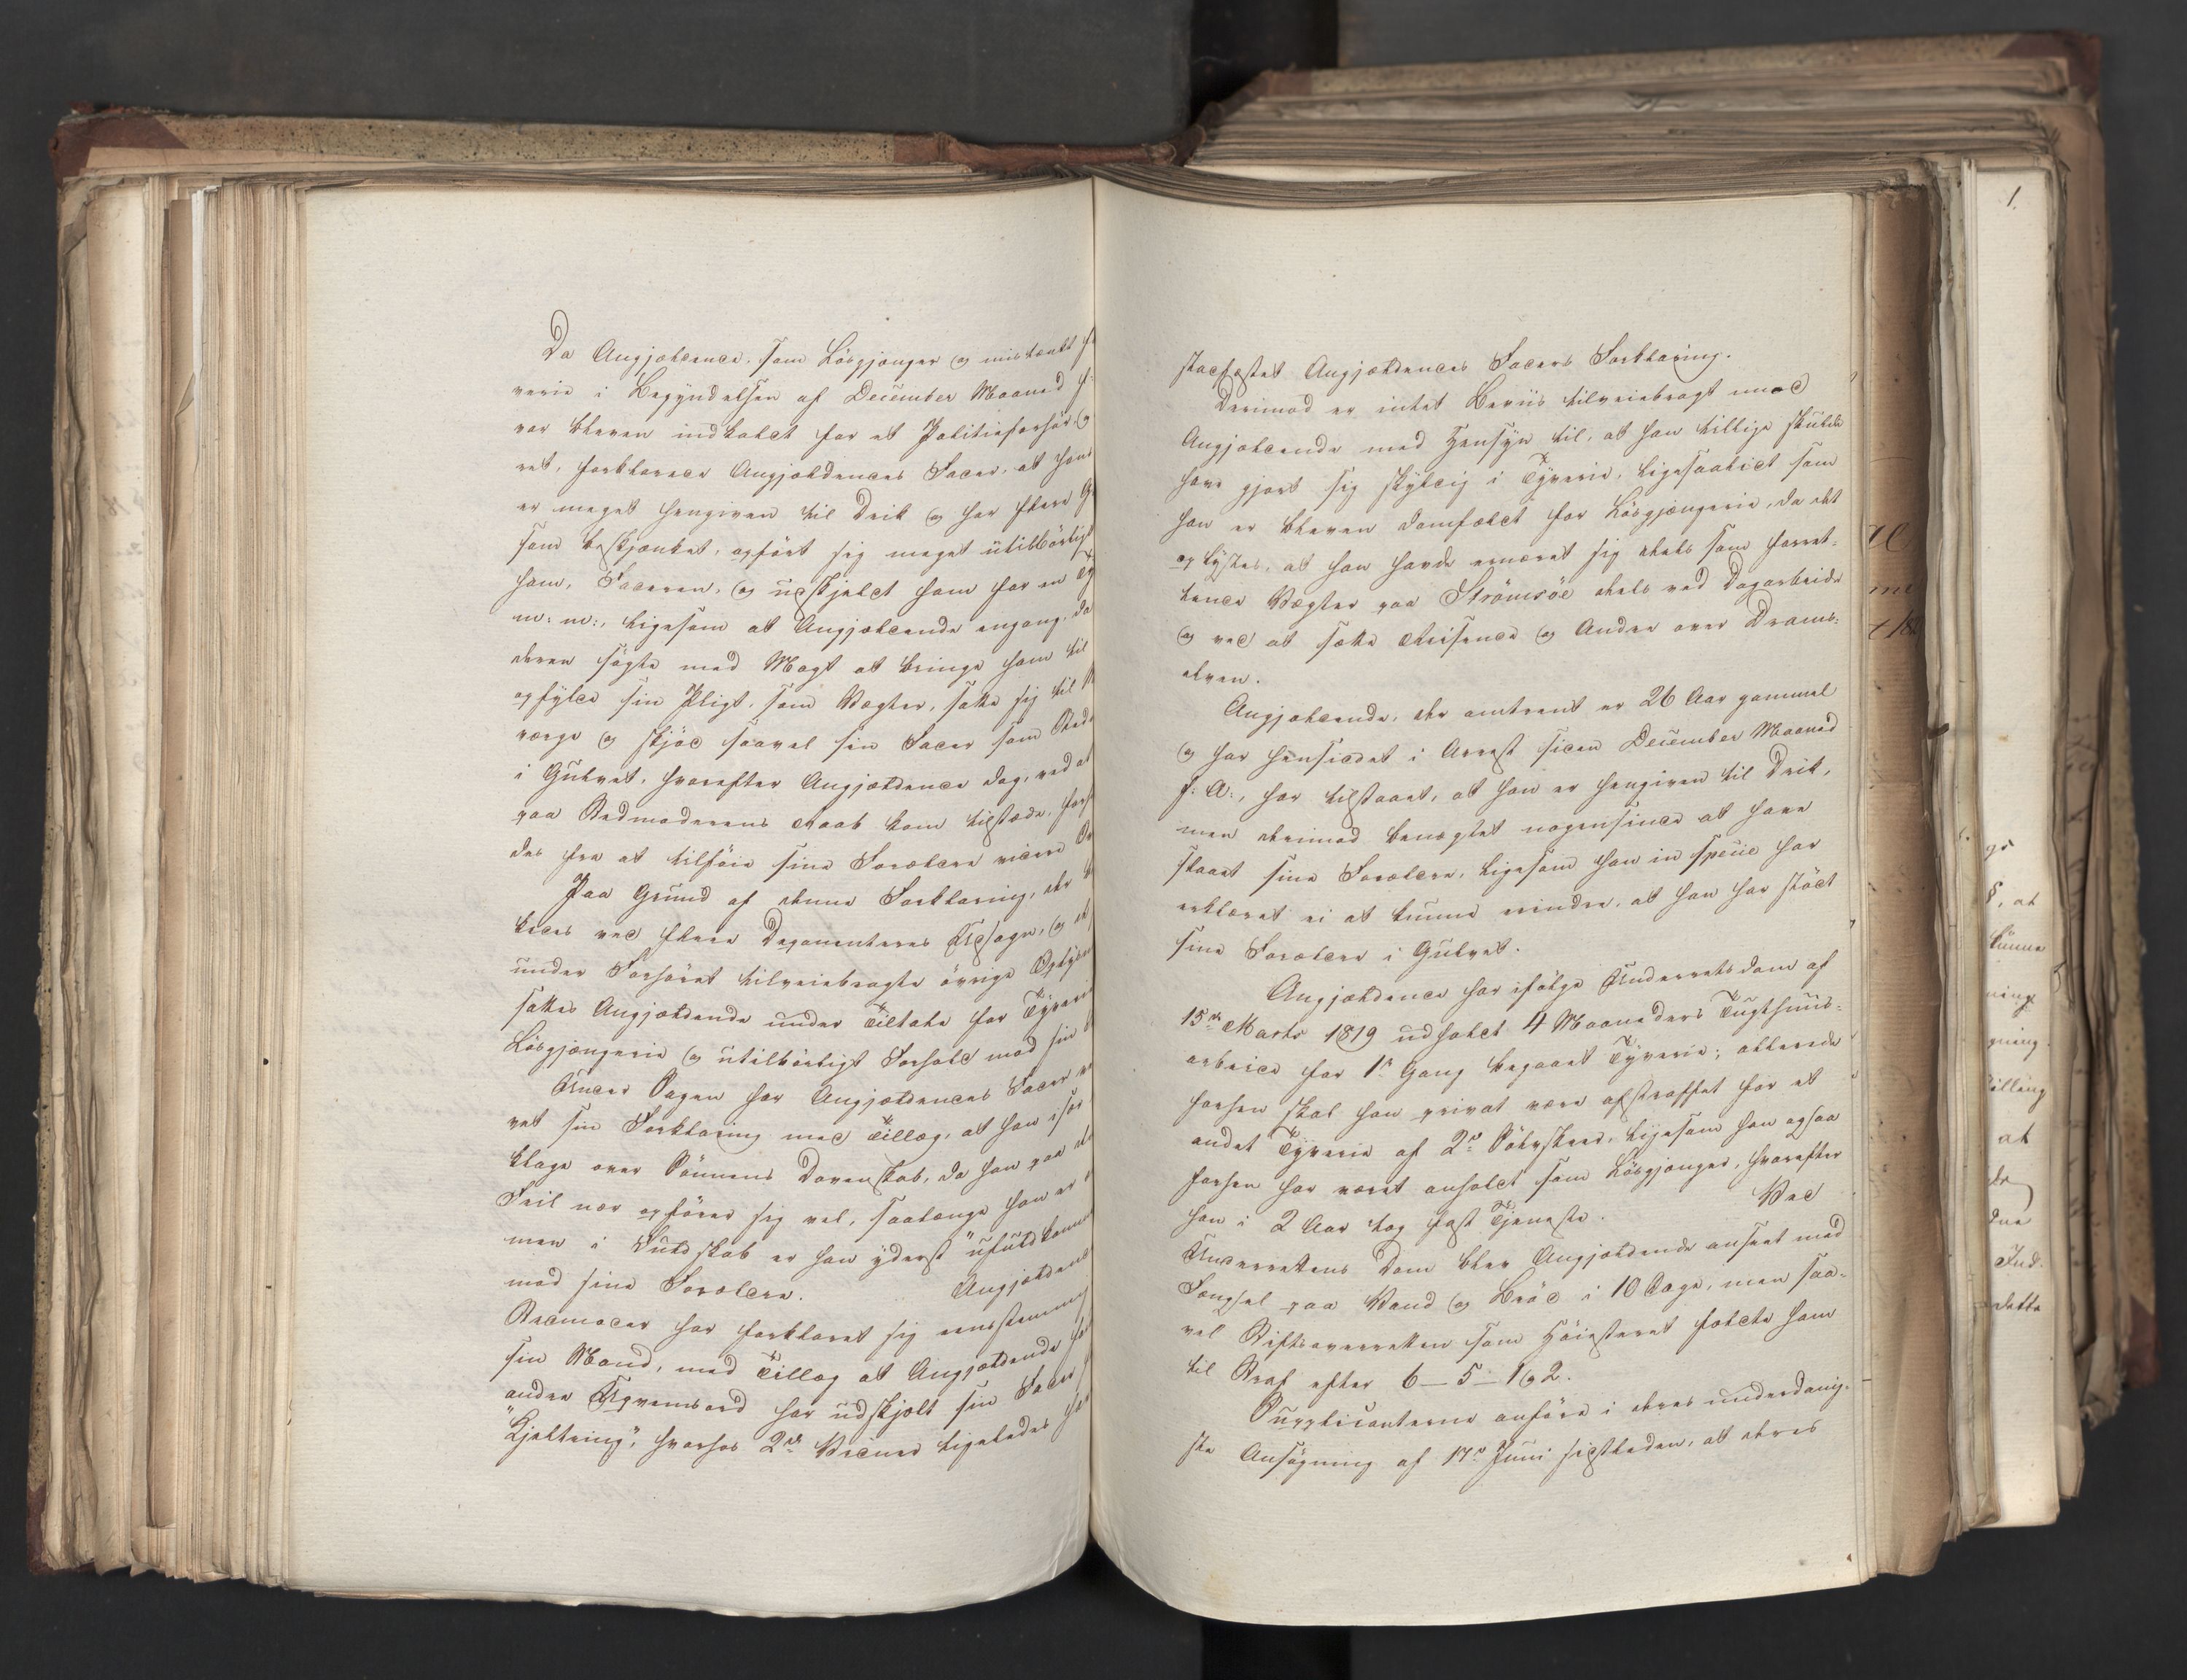 Da Angjældende, som Lösgjænger og mistænkt
verie i Begyndelsen af December Maaned
var bleven indkaldt for et Politieforhör, og
ret, forklarede Angjældendes Fader, at han
er meget hengiven til Drik og har flere
som beskjænket, opfört sig meget utilbörligt
ham, Faderen, og udskjældt ham for en
m: m:, ligesom at Angjældende engang, da
deren sögte med Magt at bringe ham til
opfylde sin Pligt, som Vægter, satte sig til
værge og skjöd saavel sin Fader som Sted
i Gulvet, hvorefter Angjældende dog, ved at
paa Stedmoderens Raab kom tilstæde, forh
des fra at tilföie sine Forældre videre
Paa Grund af denne Forklaring, der
kedes ved flere Deponenteres Udsagn, og
under Forhöret tilveiebragte övrige Oplysn
sattes Angjældende under Tiltale for Tyverie
Lösgjængerie og utilbörligt Forhold mod sin
Under Sagen har Angjældendes Fader
ret sin Forklaring med Tillæg, at han især
klage over Sönnens Dovenskab, da han paa
Feil nær opförer sig vel, saalænge han er
men i Fuldskab er han yderst "ufuldkommen
mod sine Forældre. Angjældendes
Stedmoder har forklaret sig eensstemmig
sin Mand, med Tillæg at Angjældende
andre Ukvemsord har udskjælt sin Fader
"Kjæltring", hvorhos 2de Vidner ligeledes
stadfæstet Angjældendes Faders Forklaring.
Derimod er intet Beviis tilveiebragt mod
Angjældende med Hensyn til, at han tillige skulde
have gjort sig skyldig i Tyverie, ligesaalidt som
han er bleven domfældt for Lösgjængerie, da det
oplystes, at han havde ernæret sig deels som forret-
tende Vægter paa Strömsöe deels ved Dagarbeide
og ved at sætte Reisende og Andre over Drams-
elven.
Angjældende, der omtrent er 26 Aar gammel
og har hensiddet i Arrest siden December Maaned
f: A:, har tilstaaet, at han er hengiven til Drik,
men derimod benægtet nogensinde at have
slaaet sine Forældre, ligesom han in specie har
erklæret ei at kunne erindre, at han har stödt
sine Forældre i Gulvet.
Angjældende har ifölge Underretsdom af
15de Marts 1819 udholdt 4 Maaneders Tugthuus-
arbeide for 1ste Gang begaaet Tyverie; allerede
forhen skal han privat være afstraffet for et
andet Tyverie af 2de Sölvskeer, ligesom han ogsaa
forhen har været anholdt som Lösgjænger, hvorefter
han i 2 Aar tog fast Tjeneste. Ved
Underrettens Dom blev Angjældende anseet med
Fængsel paa Vand og Bröd i 10 Dage, men saa-
vel Stiftsoverretten som Höiesteret fældte ham
til Straf efter 6 – 5 – 1 og 2.
Supplicanterne anföre i deres underdanig-
ste Ansögning af 17de Juni sidstleden, at deres
1.
§, at
kunne
at
Ind.
dette